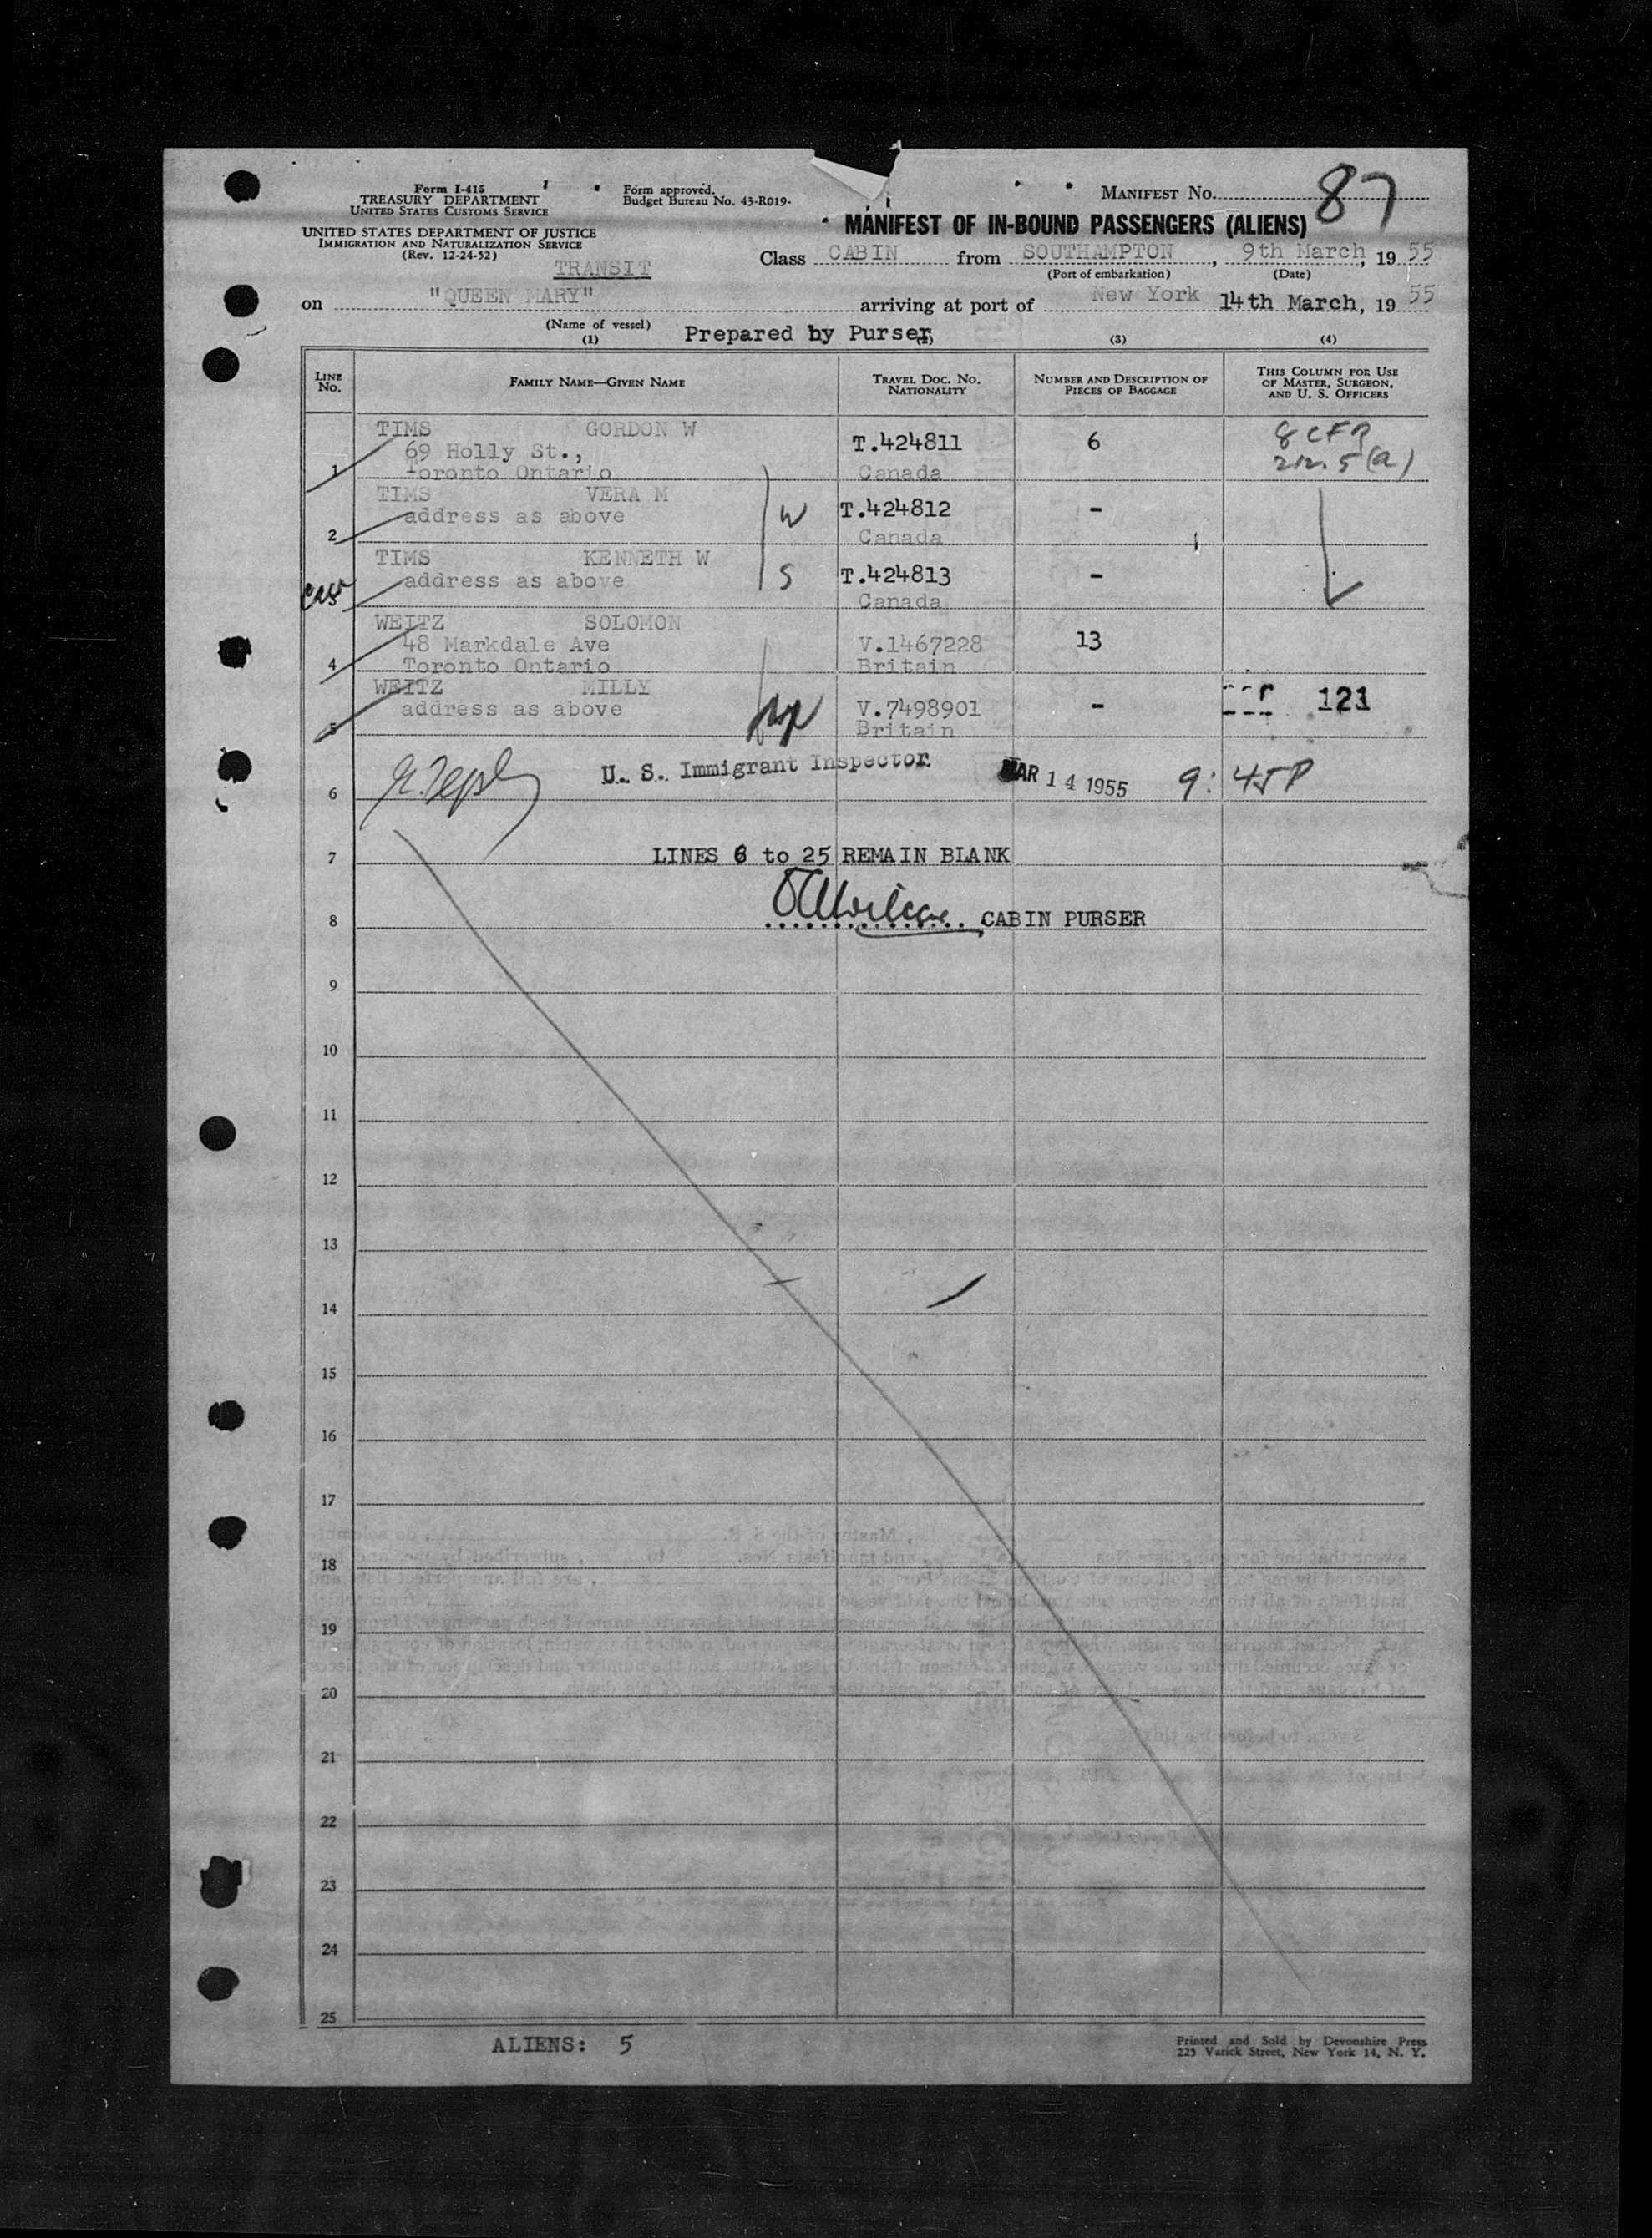 Form I-415
TREASURY DEPARTMENT
UNITED STATES CUSTOMS SERVICE
UNITED STATES DEPARTMENT OF JUSTICE
IMMIGRATION AND NATURALIZATION SERVICE
(Rev. 12-24-52)
TRANSIT
Form approved.
Budget Bureau No. 43-R019-
MANIFEST No. 87
MANIFEST OF IN-BOUND PASSENGERS (ALIENS)
Class CABIN from SOUTHAMPTON, 9th March, 19 55
(Port of embarkation) (Date)
on "QUEEN MARY" arriving at port of New York 14th March, 19 55
(Name of vessel) Prepared by Purser
(1) (3) (4)
LINE No. FAMILY NAME—GIVEN NAME TRAVEL DOC. No. NATIONALITY NUMBER AND DESCRIPTION OF PIECES OF BAGGAGE THIS COLUMN FOR USE OF MASTER, SURGEON, AND U. S. OFFICERS
TIMS GORDON W T.424811 6 8 CFR
69 Holly St., 212.5(a)
1 Toronto Ontario Canada
TIMS VERA M W T.424812 -
2 address as above Canada
TIMS KENNETH W S T.424813 -
address as above Canada
WEITZ SOLOMON V.1467228 13
48 Markdale Ave
4 Toronto Ontario Britain
WEITZ MILLY V.7498901 - 121
5 address as above Britain
U. S. Immigrant Inspector MAR 14 1955 9:45P
6
7 LINES 6 to 25 REMAIN BLANK
8 CABIN PURSER
9
10
11
12
13
14
15
16
17
18
19
20
21
22
23
24
25
ALIENS: 5
Printed and Sold by Devonshire Press
225 Varick Street, New York 14, N. Y.